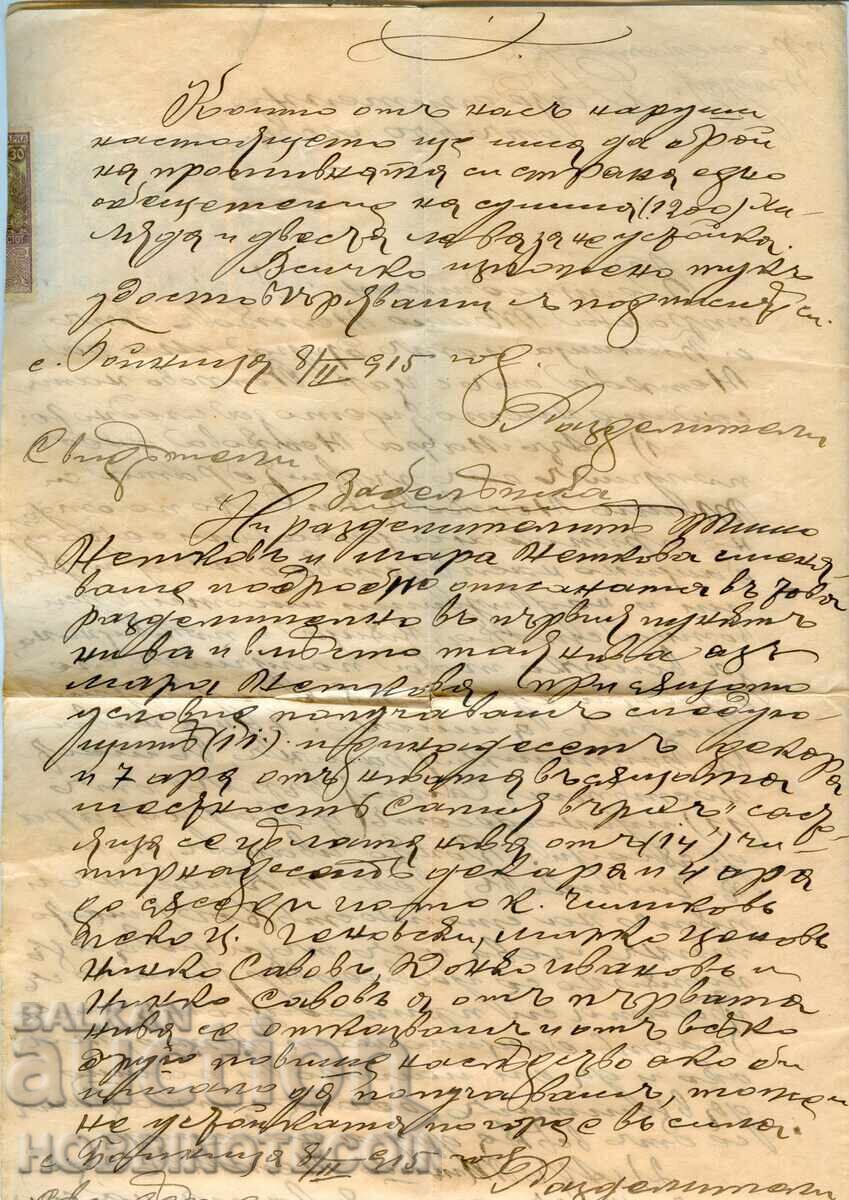 Който отъ насъ наруши
настоящето ще има да брои
на противната си страна едно
обещетение на сумма (1200) хи-
ляда и двесте лева за неустойка.
Всичко изложено тукъ
удостовѣряваме съ подписитѣ си.
с. Бойница 8/II 915 год.
Разделители
Свидѣтели
Забелѣжка
Ни разделителитѣ
Нетковъ и Мара Неткова сменя-
ваме подробно описаната въ това
разделително въ първия пунктъ
нива и вмѣсто тая нива азъ
Мара Неткова при същото
условие получавамъ следую-
щитѣ (11) единадесетъ декара
и 7 ара отъ нивата въ същата
местность „ връхъ" състо-
яща се цялата нива отъ (14) чи-
тиринадесеть декара и 4 ара
до съседи пътя К.
Цеко Ц. Геновски, Марко Ценовъ
Нинко Савовъ, Ивановъ и
Нинко Савовъ а отъ първата
нива се отказвамъ и отъ всѣко
друго повише наследство ако би
имало да получавамъ, тоже и
неустойката по горе е въ сила.
с. Бойница 8/II 915 год.
Разделители
30
BALKAN
auction
HOBBINOTICOIN